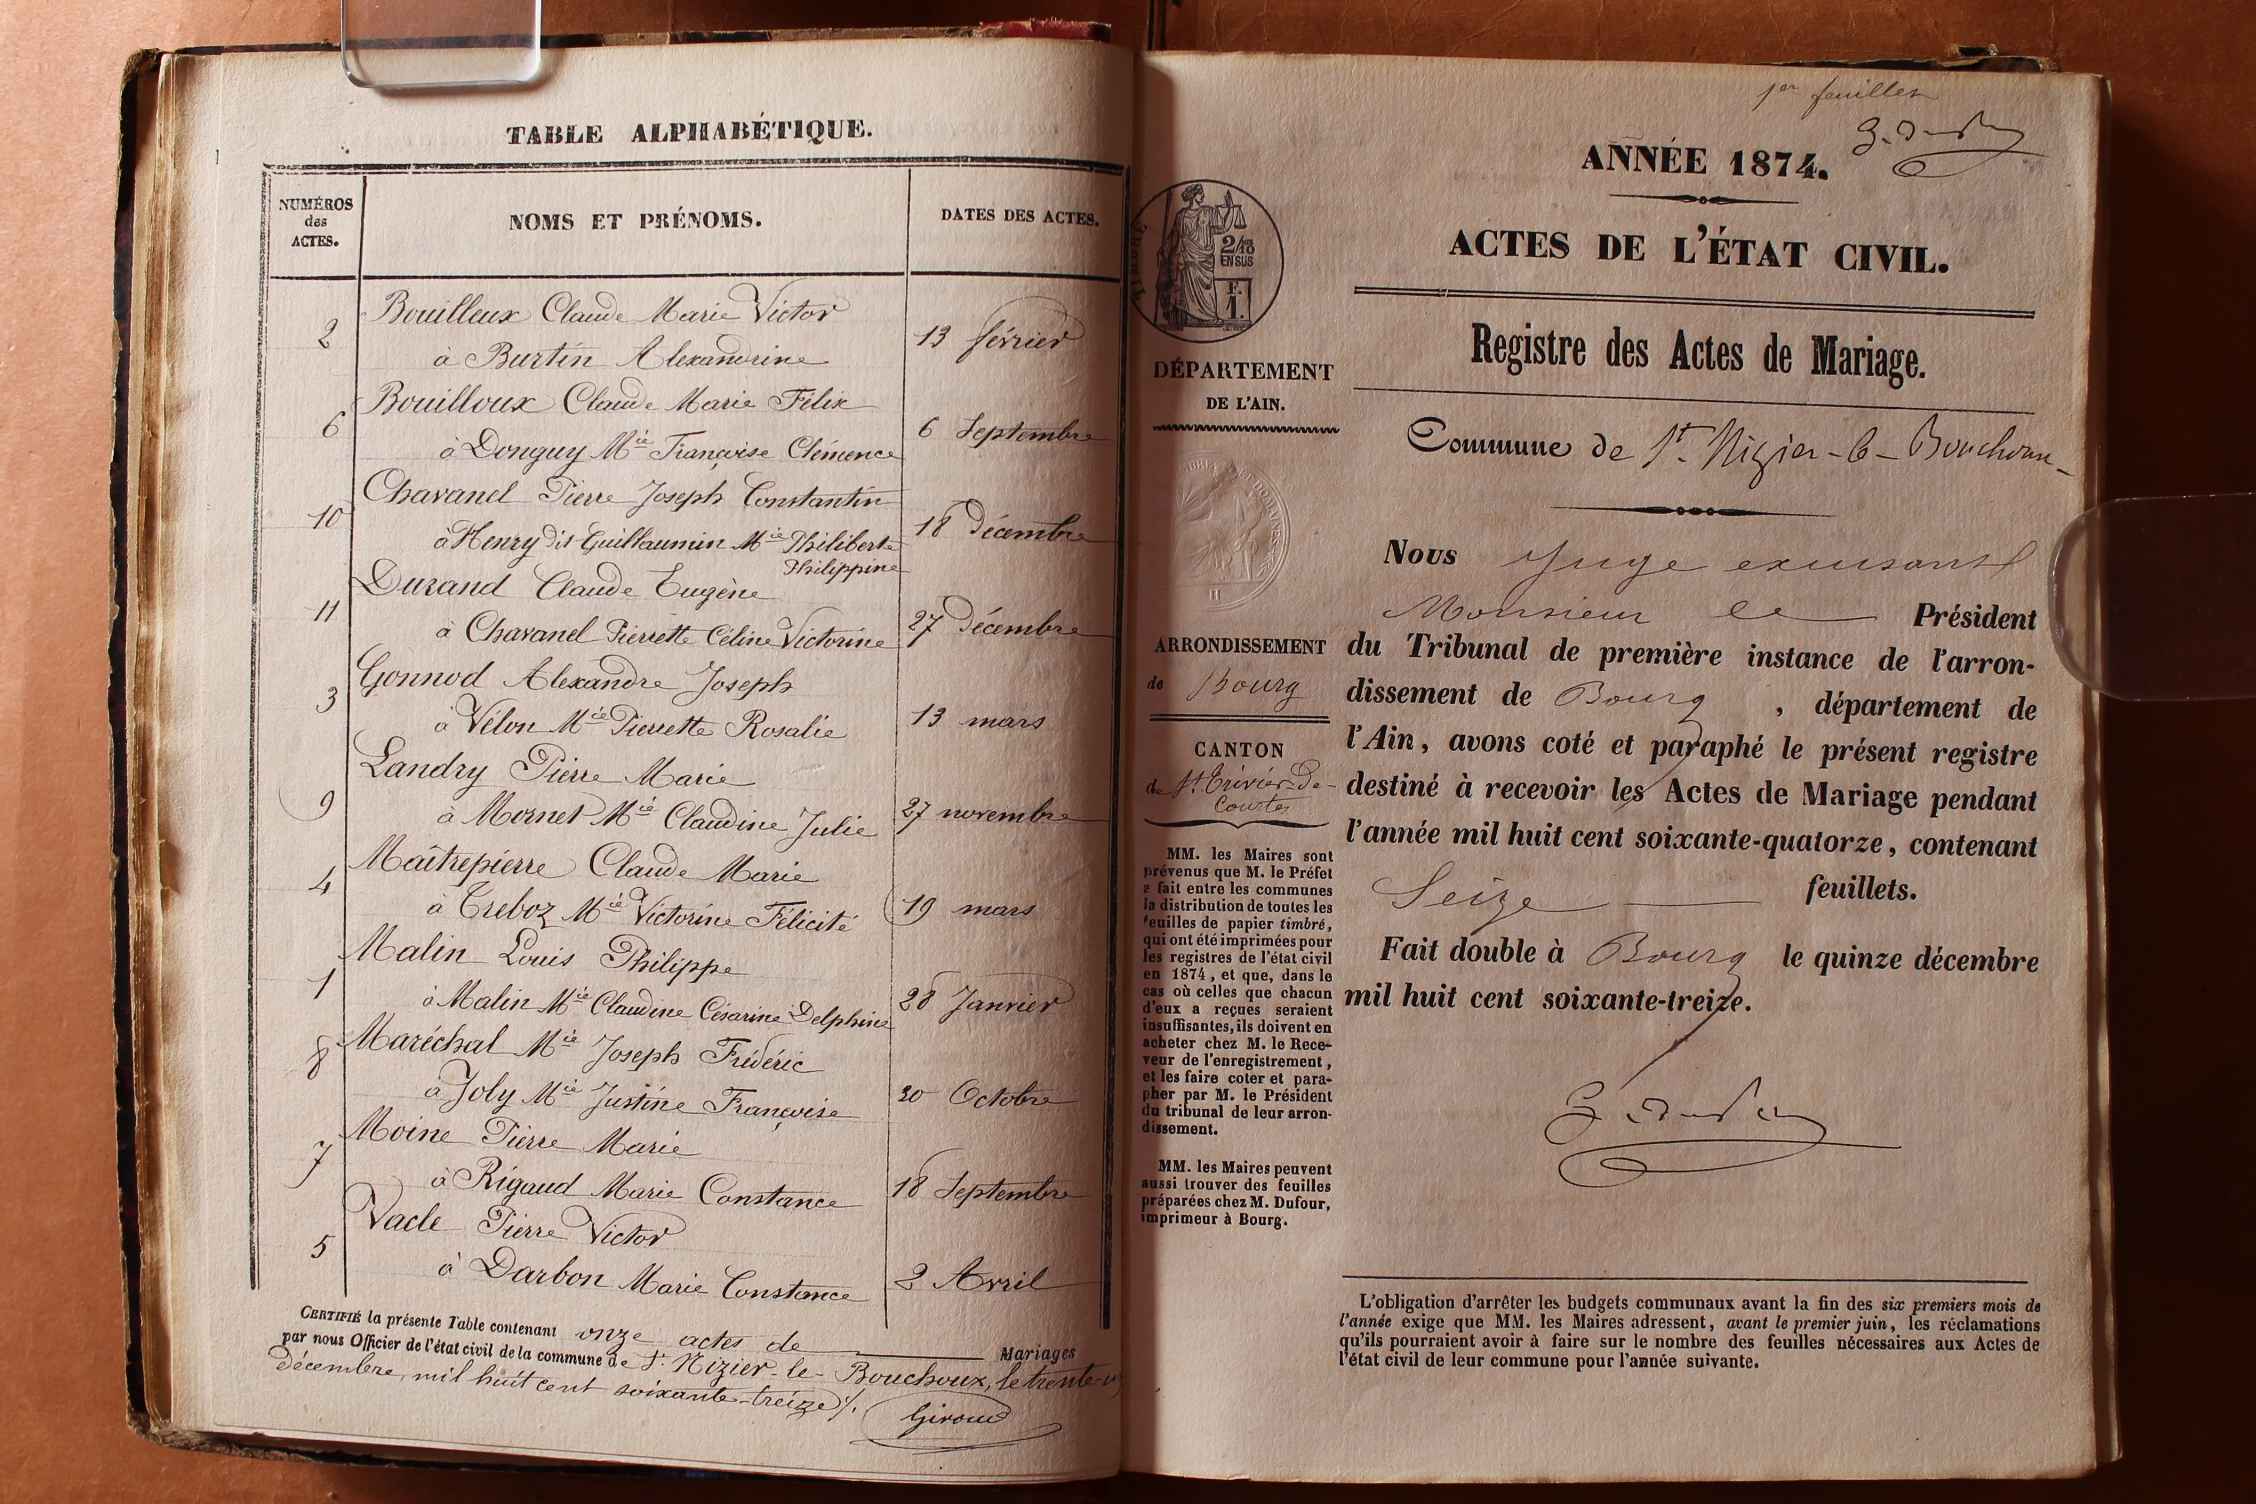 TABLE ALPHABÉTIQUE.
NUMÉROS
des
ACTES.
NOMS ET PRÉNOMS.
DATES DES ACTES.
Bouilleux Claude Marie Victor
2
à Burtin Alexandrine
13 février
Bouilloux Claude Marie Félix
6
à Donguy Mie Françoise Clémence
6 Septembre
Chavanel Pierre Joseph Constantin
10
à Henry dit Guillaumin Mie Philiberte
Philippine
18 Décembre
Durand Claude Eugène
11
à Chavanel Pierrette Céline Victorine
27 Décembre
Gonnod Alexandre Joseph
3
à Vélon Mie Pierrette Rosalie
13 mars
Landry Pierre Marie
9
à Mornet Mie Claudine Julie
27 novembre
Maîtrepierre Claude Marie
4
à Treboz Mie Victorine Félicité
19 mars
Malin Louis Philippe
1
à Malin Mie Claudine Césarine Delphine
28 Janvier
Maréchal Mie Joseph Frédéric
8
à Joly Mie Justine Françoise
20 Octobre
Moine Pierre Marie
7
à Rigaud Marie Constance
18 Septembre
Vacle Pierre Victor
5
à Darbon Marie Constance
2 Avril
CERTIFIÉ la présente Table contenant onze actes de Mariages
par nous Officier de l'état civil de la commune de St Nizier-le-Bouchoux, le trente-un
décembre, mil huit cent soixante-treize ./.
Giroud
1er feuillet
ANNÉE 1874.
ACTES DE L'ÉTAT CIVIL.
2/10
EN SUS
F.
1.
Registre des Actes de Mariage.
DÉPARTEMENT
DE L'AIN.
Commune de St Nizier-le-Bouchoux
ARRONDISSEMENT
de Bourg
CANTON
de St Trivier-de-
Courtes
MM. les Maires sont
prévenus que M. le Préfet
a fait entre les communes
la distribution de toutes les
feuilles de papier timbré,
qui ont été imprimées pour
les registres de l'état civil
en 1874, et que, dans le
cas où celles que chacun
d'eux a reçues seraient
insuffisantes, ils doivent en
acheter chez M. le Rece-
veur de l'enregistrement,
et les faire coter et para-
pher par M. le Président
du tribunal de leur arron-
dissement.
MM. les Maires peuvent
aussi trouver des feuilles
préparées chez M. Dufour,
imprimeur à Bourg.
Nous Juge excusant
Monsieur le Président
du Tribunal de première instance de l'arron-
dissement de Bourg, département de
l'Ain, avons coté et paraphé le présent registre
destiné à recevoir les Actes de Mariage pendant
l'année mil huit cent soixante-quatorze, contenant
Seize feuillets.
Fait double à Bourg le quinze décembre
mil huit cent soixante-treize.
L'obligation d'arrêter les budgets communaux avant la fin des six premiers mois de
l'année exige que MM. les Maires adressent, avant le premier juin, les réclamations
qu'ils pourraient avoir à faire sur le nombre des feuilles nécessaires aux Actes de
l'état civil de leur commune pour l'année suivante.